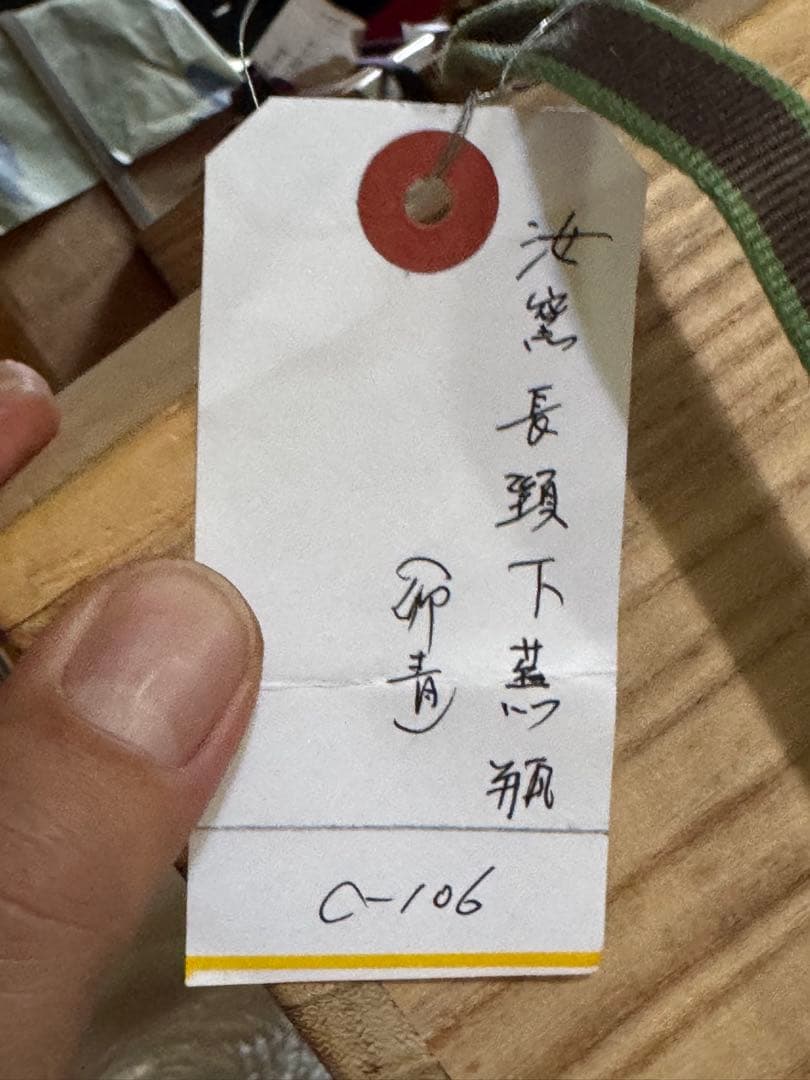 汝窯長頸下蕪瓶
(卵青)
C-106